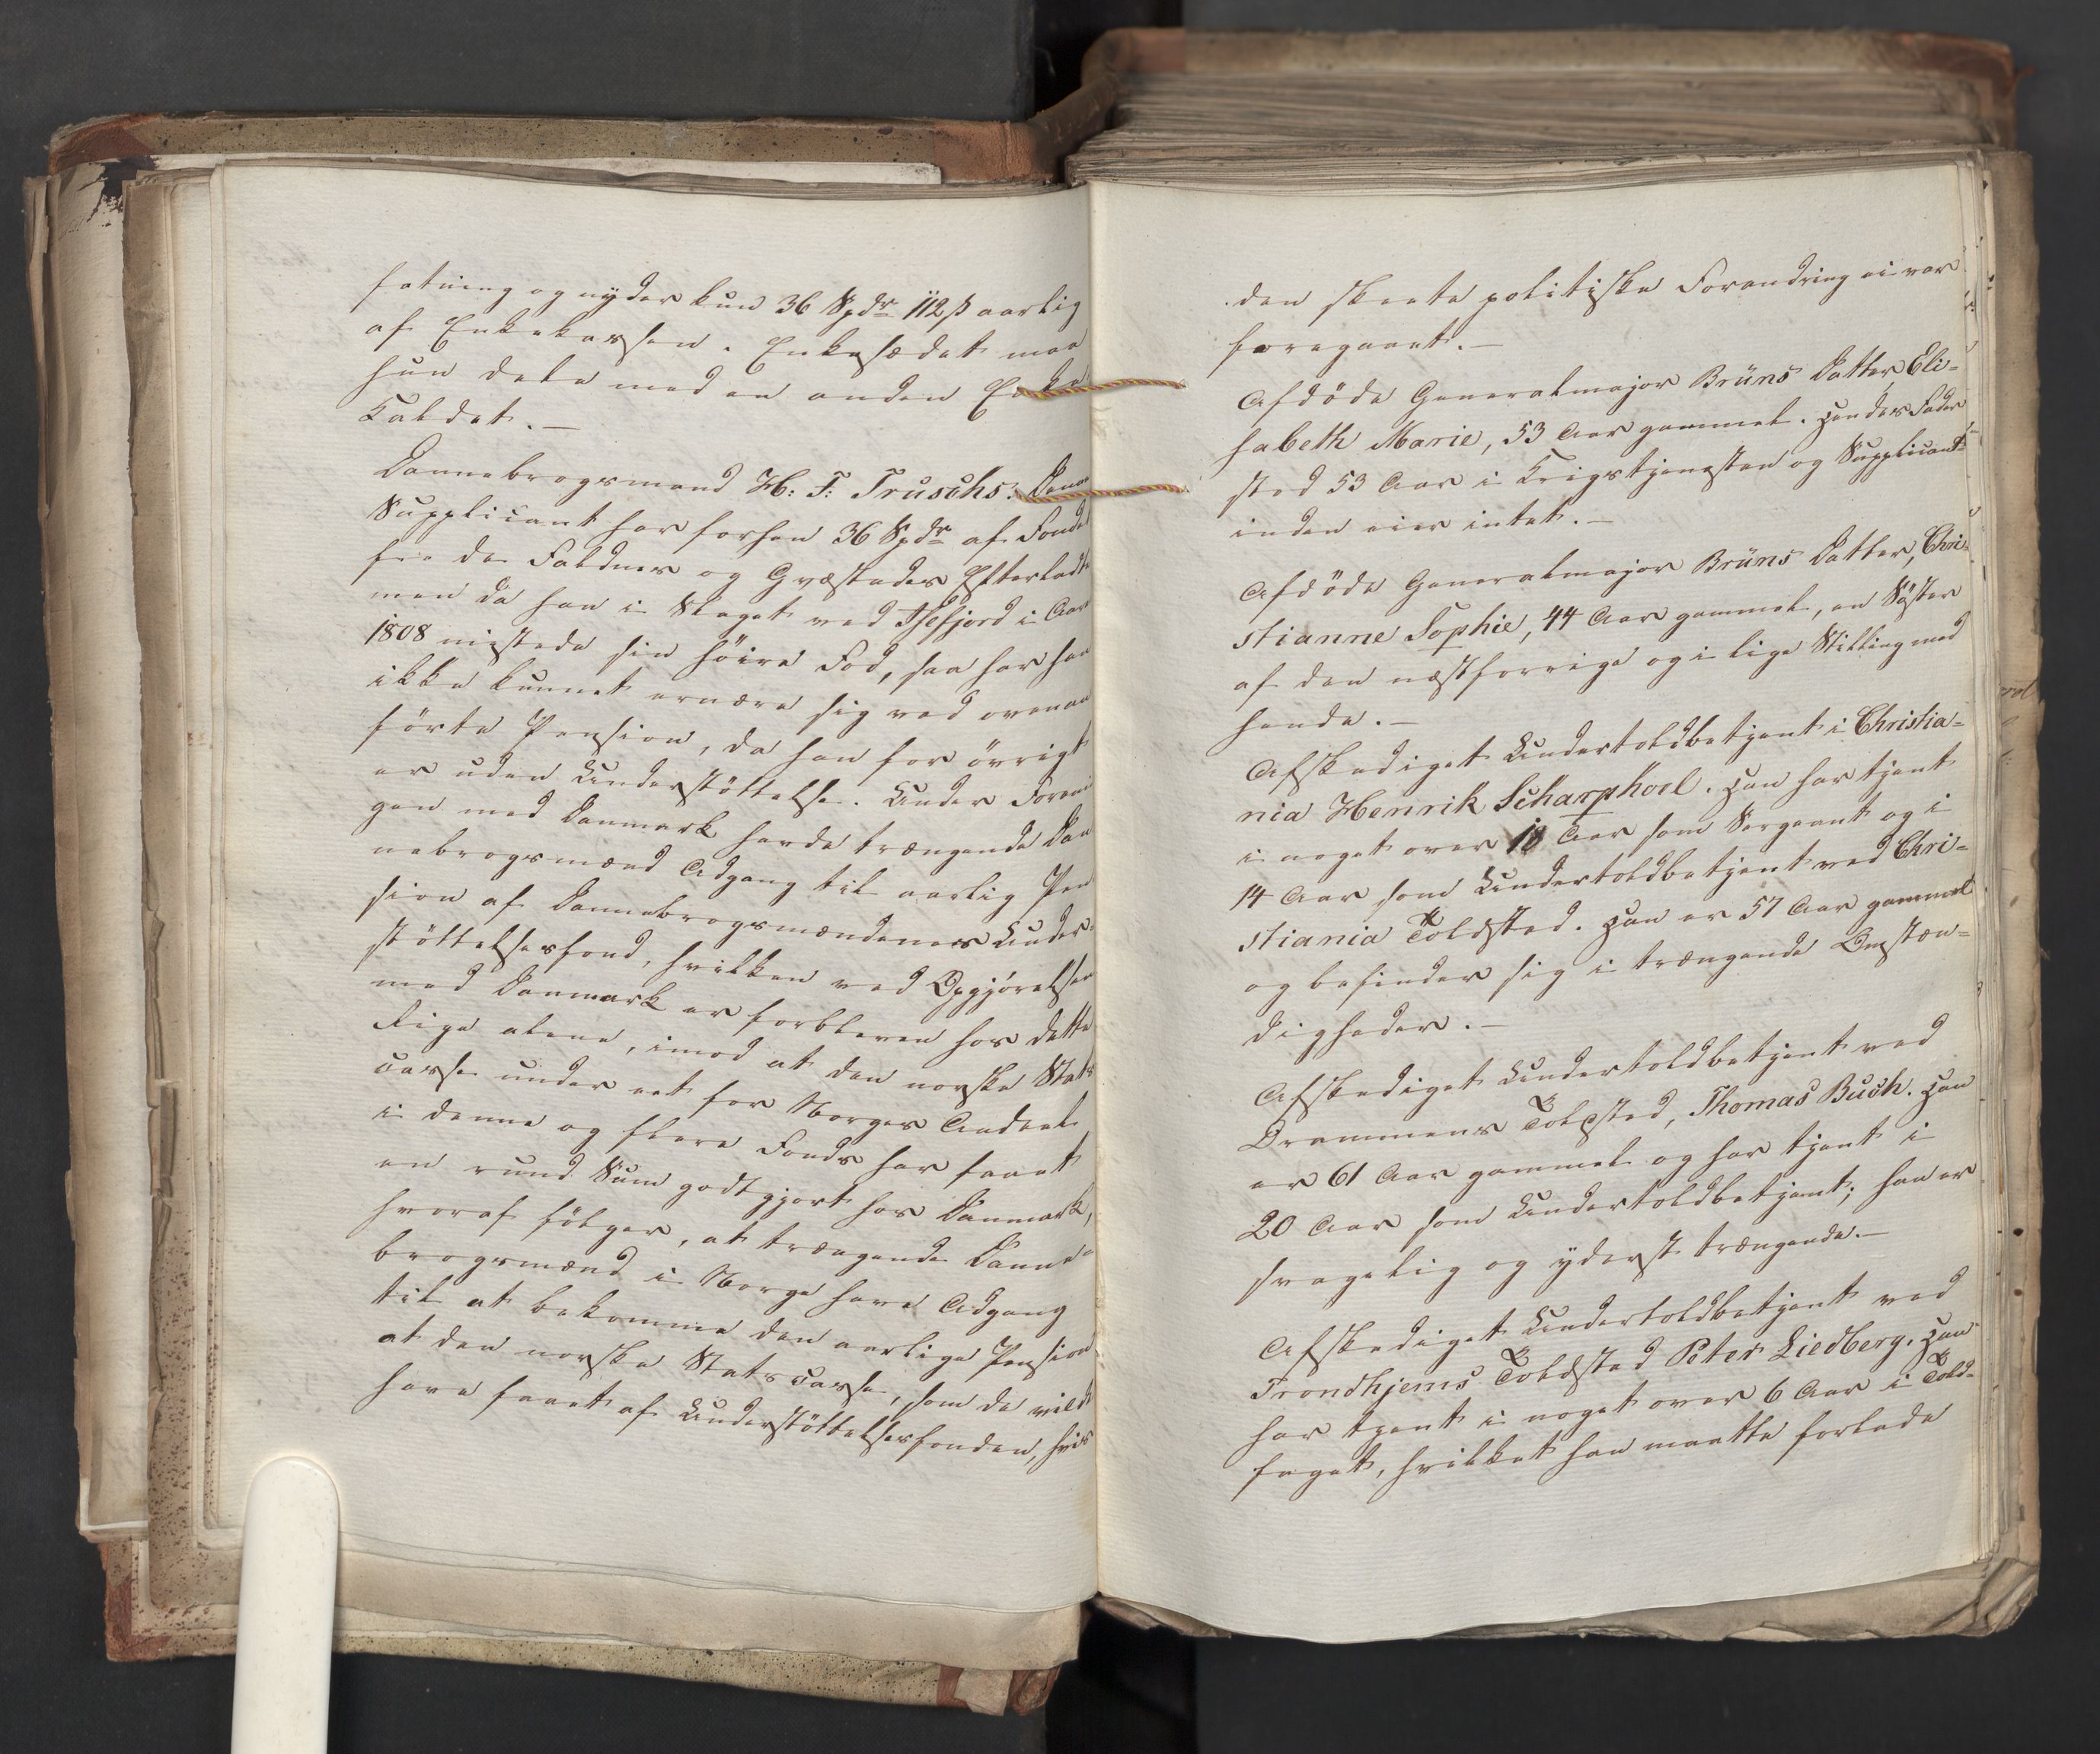 fatning og nyder kun 36 Spdr 112 ß aarlig
af Enkekassen. Enkesædet maa
hun dele med en anden Enke i
Kaldet.—
Dannebrogsmand H: F: Truschs: Denne
Supplicant har forhen 36 Spdr af Fondet
for de Faldnes og Qvæstedes Efterladte
men da han i Slaget ved Isefjord i Aaret
1808 mistede sin höire Fod, saa har han
ikke kunnet ernære sig ved ovenan
förte Pension, da han for övrigt
er uden Understöttelse. Under Forenin
gen med Danmark havde trængende Dan
nebrogsmænd Adgang til aarlig Pen
sion af Dannebrogsmændenes Under-
stöttelsesfond, hvilken ved Opgjörelsen
med Danmark er forbleven hos dette
Rige alene, imod at den norske Stats
casse under eet for Norges Andeel
i denne og flere Fonds har faaet
en rund Sum godtgjort hos Danmark,
hvoraf fölger, at trængende Danne-
brogsmænd i Norge have Adgang
til at bekomme den aarlige Pension
at den norske Statscasse, som de vilde
have faaet af Understöttelsesfonden, hvis
den skeete politiske Forandring ei var
foregaaet.—
Afdöde Generalmajor Brüns Datter, Eli-
sabeth Marie, 53 Aar gammel. Hendes Fader
stod 53 Aar i Krigstjenesten og Supplicant-
inden eier intet.—
Afdöde Generalmajor Brüns Datter, Chri-
stianne Sophie, 44 Aar gammel, en Söster
af den næstforrige og i lige Stilling med
hende.—
Afskediget Undertoldbetjent i Christia-
nia Henrik Scharphoel. Han har tjent
i noget over 10 Aar som Sergeant og i
14 Aar som Undertoldbetjent ved Chri-
stiania Toldsted. Han er 57 Aar gammel
og befinder sig i trængende Omstæn-
digheder.—
Afskediget Undertoldbetjent ved
Drammens Toldsted, Thomas Busch. Han
er 61 Aar gammel og har tjent i
20 Aar som Undertoldbetjent; han er
svagelig og yderst trængende.—
Afskediget Undertoldbetjent ved
Trondhjems Toldsted Peter Liedberg. Han
har tjent i noget over 6 Aar i Told-
faget, hvilket han maatte forlade